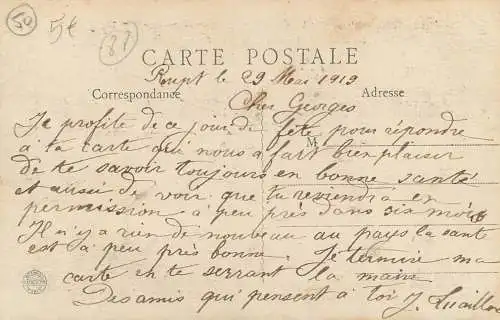 50 5€ 87
CARTE POSTALE
Rupt le 29 Mai 1919
Correspondance Adresse
Cher Georges
Je profite de ce jour de fête pour répondre
M
à ta carte qui nous a fait bien plaisir
de te savoir toujours en bonne santé
et aussi de voir que tu reviendra en
permission à peu près dans six mois
Il n'y a rien de nouveau au pays la santé
est à peu près bonne. Je termine ma
carte en te serrant la main
Des amis qui pensent à toi J.